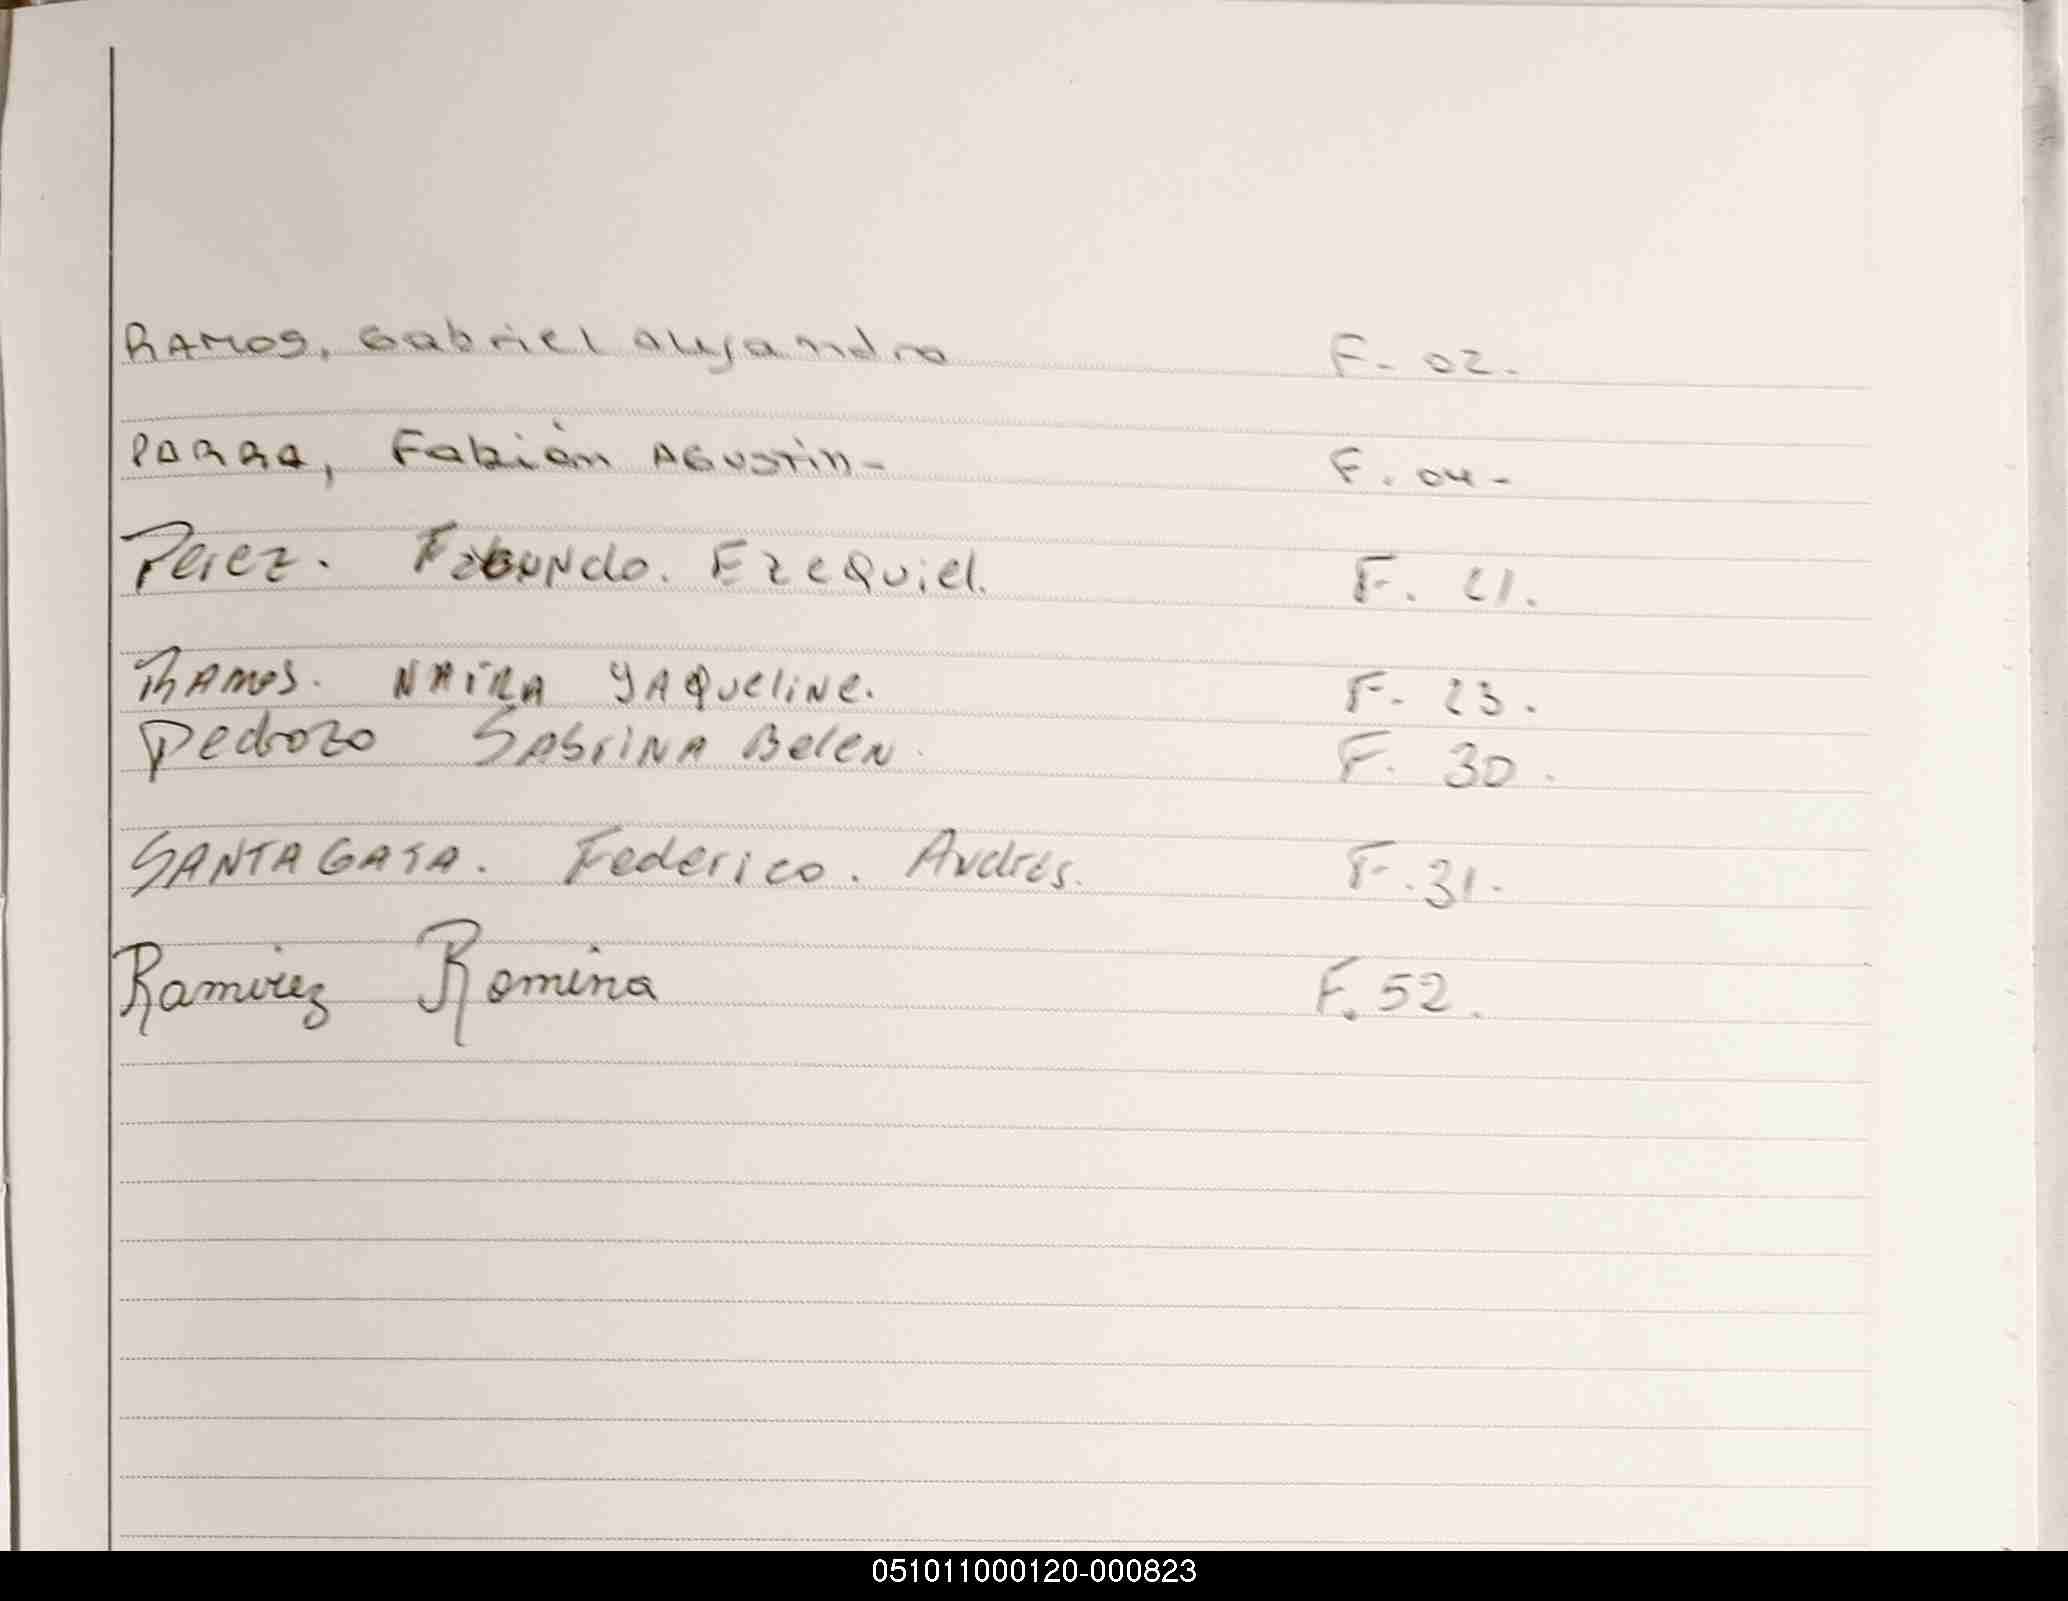 RAMOS, Gabriel Alejandro F- 02.
PARRA, Fabián AGUSTIN- F. 04-
Perez. Facundo. Ezequiel. F. 21.
RAMOS. NAIRA YAQueliNe. F- 23.
Pedrozo SABriNA BeleN. F. 30.
SANTAGATA. Federico. Andrés. F. 31.
Ramirez Romina F. 52.
051011000120-000823